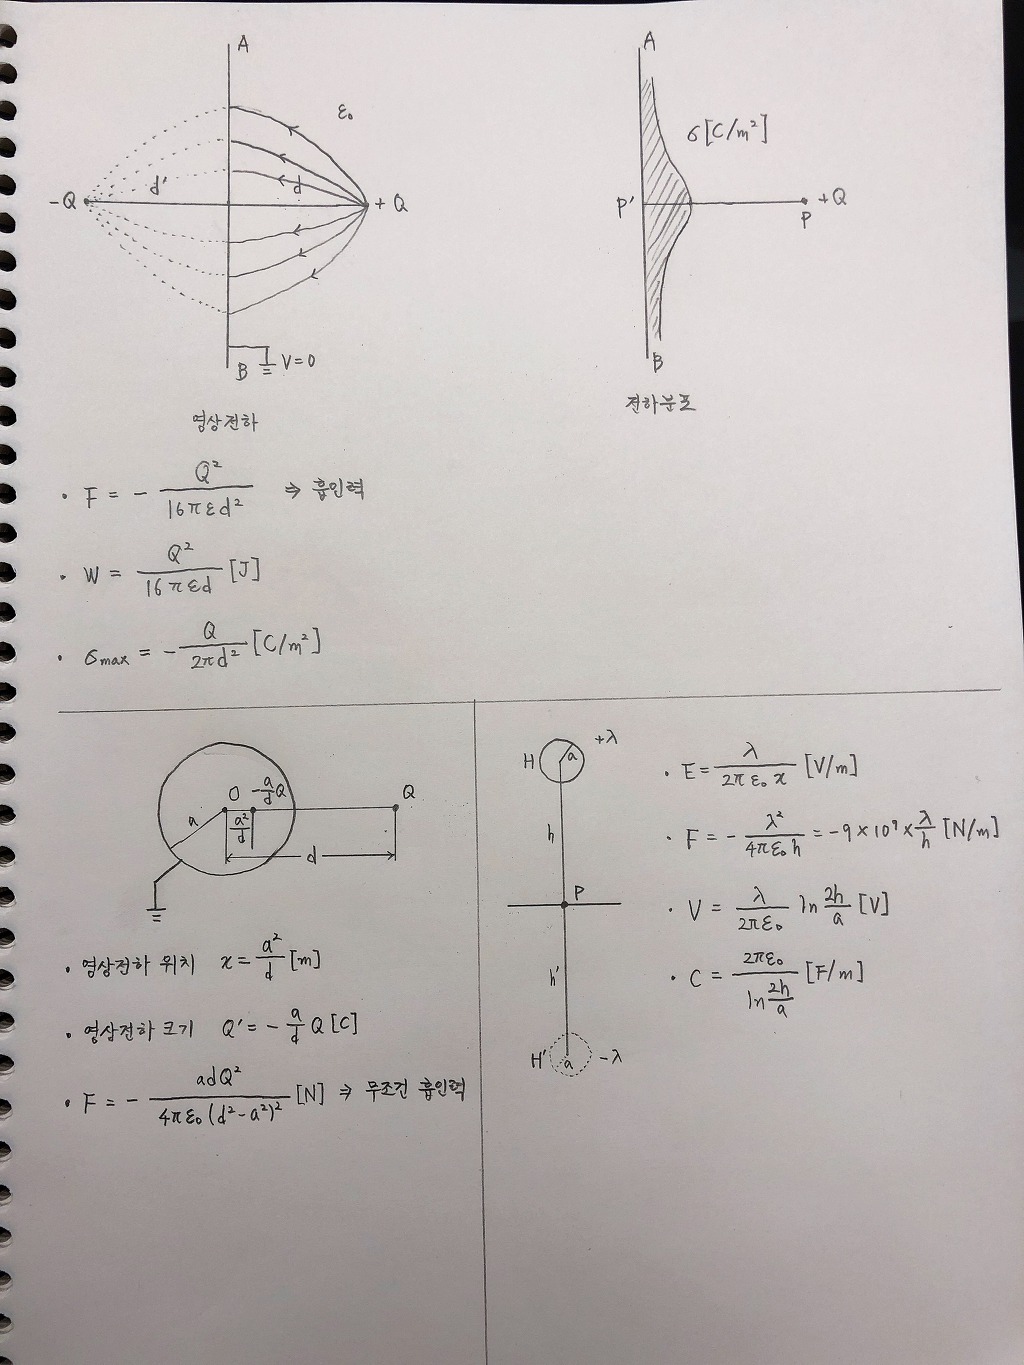 A
ε₀
-Q
d'
d
+Q
B
V=0
영상전하
A
σ[C/m²]
P'
P
+Q
B
전하분포
· F = - Q²/16πεd² ⇒ 흡인력
· W = Q²/16πεd [J]
· σmax = - Q/2πd² [C/m²]
O
-a/d Q
Q
a
a²/d
d
· 영상전하 위치 x = a²/d [m]
· 영상전하 크기 Q' = - a/d Q [C]
· F = - adQ²/4πε₀(d²-a²)² [N] ⇒ 무조건 흡인력
H
a
+λ
h
P
h'
H'
a
-λ
· E = λ/2πε₀x [V/m]
· F = - λ²/4πε₀h = -9×10⁹× λ/h [N/m]
· V = λ/2πε₀ ln 2h/a [V]
· C = 2πε₀/ln 2h/a [F/m]